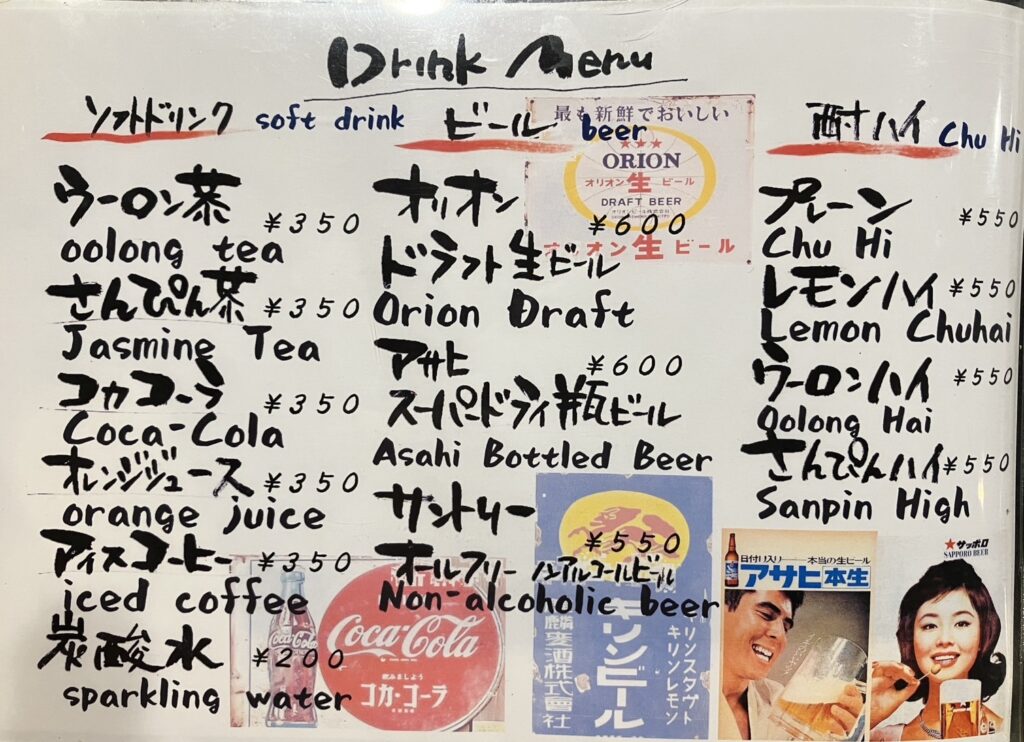 Drink Menu
ソフトドリンク soft drink
ウーロン茶 ¥350
oolong tea
さんぴん茶 ¥350
Jasmine Tea
コカコーラ ¥350
Coca-Cola
オレンジジュース ¥350
orange juice
アイスコーヒー ¥350
iced coffee
炭酸水 ¥200
sparkling water
ビール beer
オリオン ¥600
ドラフト生ビール
Orion Draft
アサヒ ¥600
スーパードライ瓶ビール
Asahi Bottled Beer
サントリー ¥550
オールフリー ノンアルコールビール
Non-alcoholic beer
酎ハイ Chu Hi
プレーン ¥550
Chu Hi
レモンハイ ¥550
Lemon Chuhai
ウーロンハイ ¥550
Oolong Hai
さんぴんハイ ¥550
Sanpin High
最も新鮮でおいしい
ORION
オリオン生ビール
DRAFT BEER
オリオンビール株式会社
オリオン生ビール
Coca-Cola
Coca-Cola
飲みましょう
コカ・コーラ
キリンビール
麒麟麦酒株式會社
キリンスタウト
キリンレモン
日付け入り——本当の生ビール
アサヒ本生
サッポロ
SAPPORO BEER